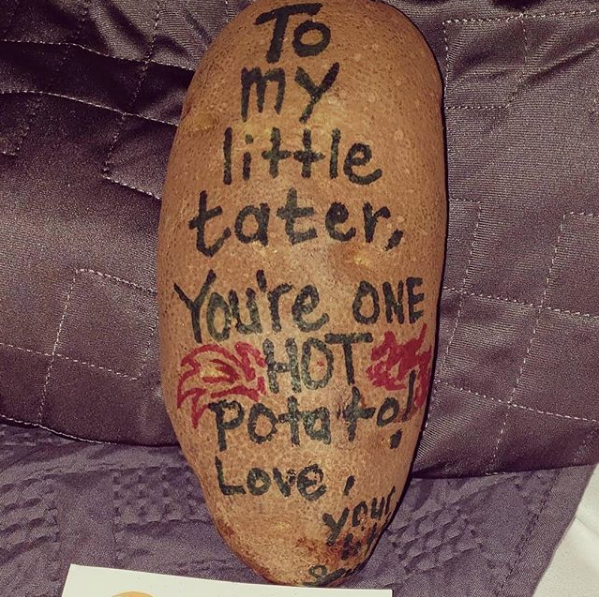 To
my
little
tater,
You're ONE
HOT
potato!
Love,
your